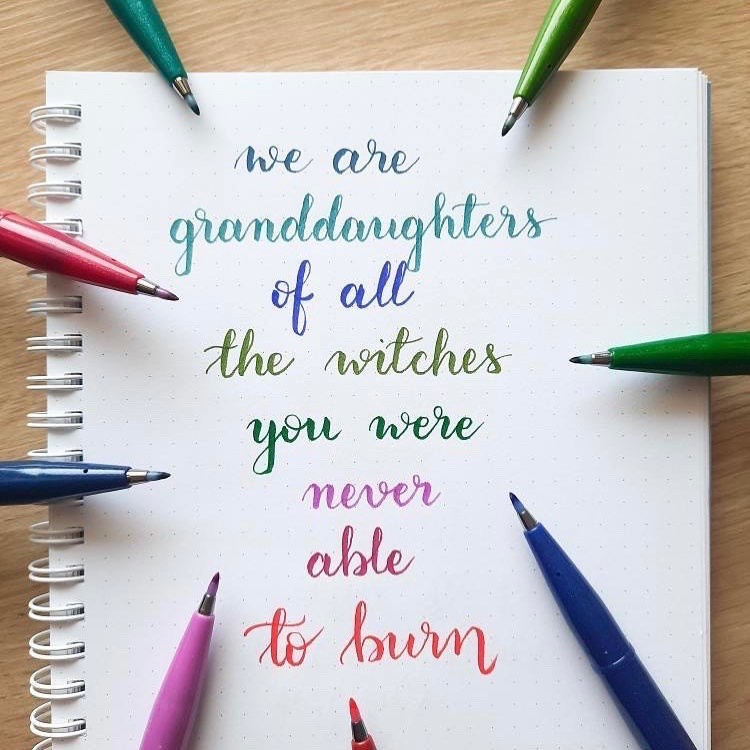 we are
granddaughters
of all
the witches
you were
never
able
to burn